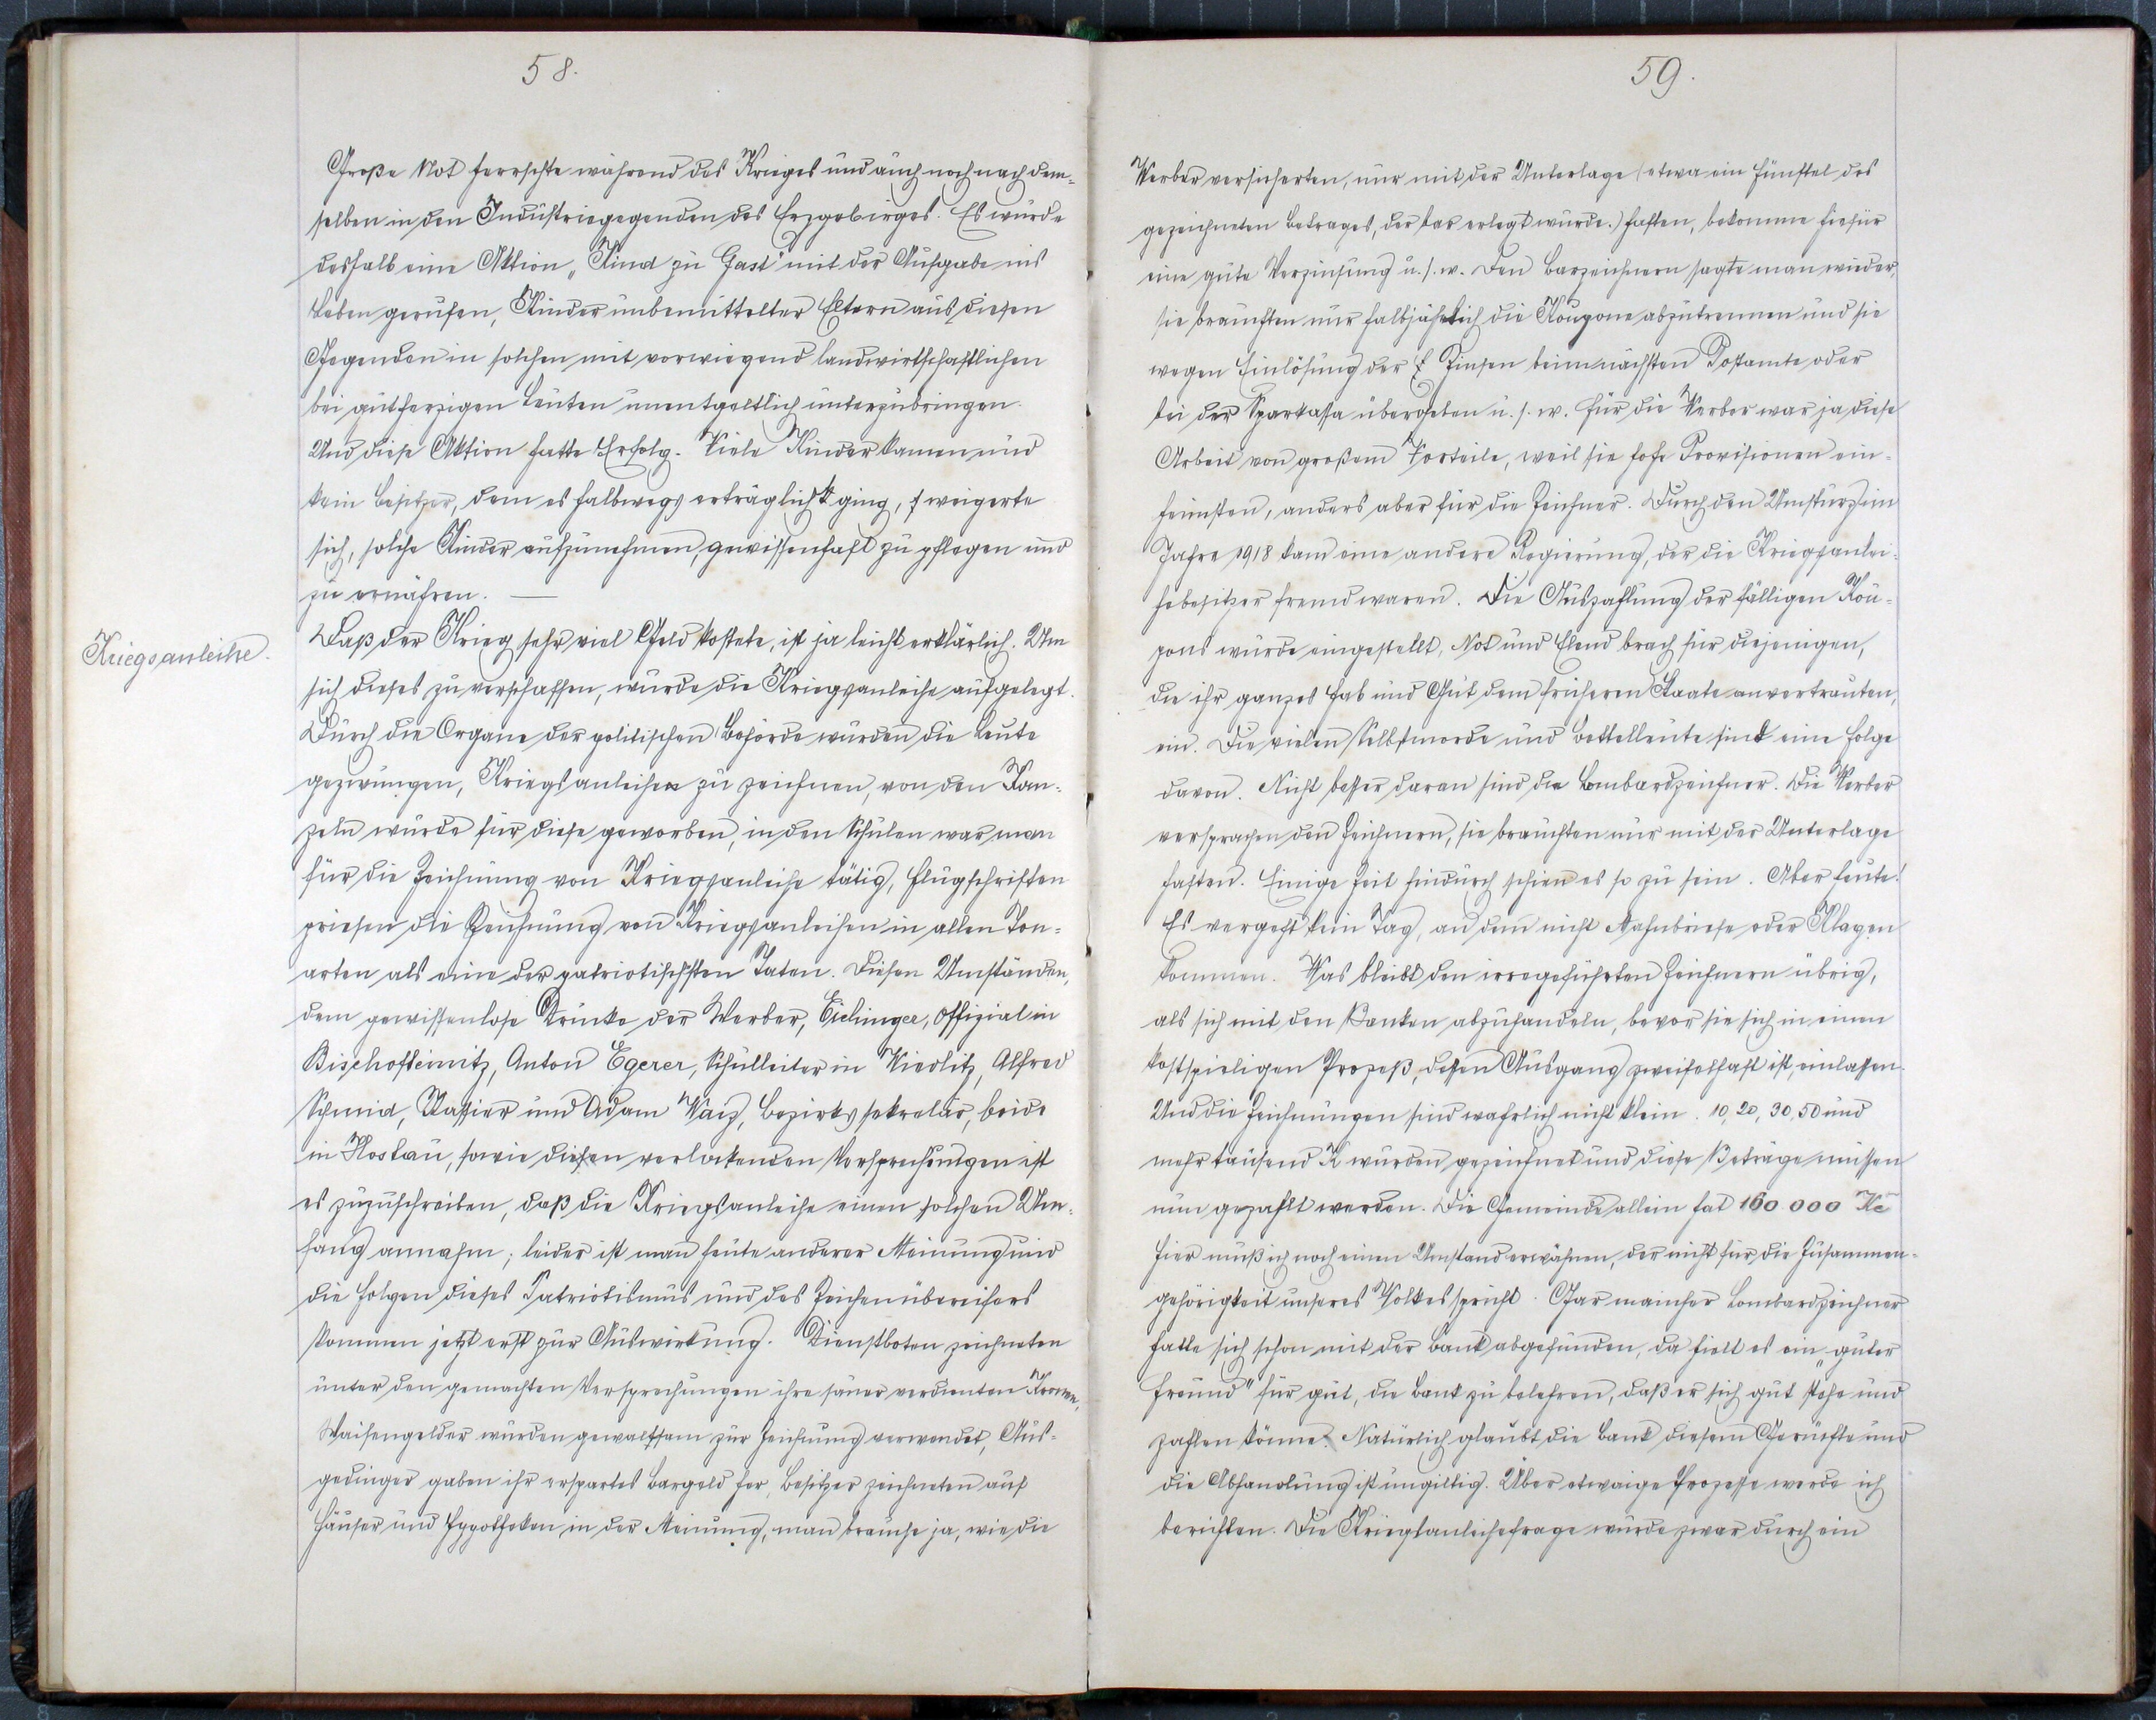 58.
Große Not herrschte während des Krieges und auch noch nach dem-
selben in den Industriegegenden des Erzgebirges. Es wurde
deshalb eine Aktion „Kind zu Gast“ mit der Aufgabe ins
Leben gerufen, Kinder unbemittelter Eltern aus diesen
Gegenden in solchen mit vorwiegend landwirtschaftlichen
bei gutherzigen Leuten unentgeltlich unterzubringen.
Und diese Aktion hatte Erfolg. Viele Kinder kamen und
kein Besitzer, dem es halbwegs erträglich ging, weigerte
sich, solche Kinder aufzunehmen, gewissenhaft zu pflegen und
zu ernähren. —
Kriegsanleihe.
Daß der Krieg sehr viel Geld kostete, ist ja leicht erklärlich. Um
sich dieses zu verschaffen, wurde die Kriegsanleihe aufgelegt.
Durch die Organe der politischen Behörde wurden die Leute
gezwungen, Kriegsanleihen zu zeichnen, von den Kan-
zeln wurde für diese geworben, in den Schulen war man
für die Zeichnung von Kriegsanleihe tätig, Flugschriften
priesen die Zeichnung von Kriegsanleihen in allen Ton-
arten als eine der patriotischsten Taten. Diesen Umständen,
dem gewissenlose Drucke der Werber, Eichinger, Offizial in
Bischofteinitz, Anton Egerer, Schulleiter in Wiedlitz, Alfred
Schmid, Kassier und Adam Waiz, Bezirkssekretär, beide
in Hostau, sowie diesen verlockenden Versprechungen ist
es zuzuschreiben, daß die Kriegsanleihe einen solchen Um-
fang annahm; leider ist man heute anderer Meinung und
die Folgen dieses Patriotismus und des Zeichenübereifers
kommen jetzt erst zur Auswirkung. Dienstboten zeichneten
unter den gemachten Versprechungen ihre sauer verdienten Kronen,
Waisengelder wurden gewaltsam zur Zeichnung verwendet, Aus-
gedinger gaben ihr erspartes Bargeld her, Besitzer zeichneten auf
Häuser und Hypotheken, in der Meinung, man brauche ja, wie die
59.
Werber versicherten, nur mit der Unterlage (etwa ein Fünftel des
gezeichneten Betrages, der bar erlegt wurde.) haften, bekomme hiefür
eine gute Verzinsung u. s. w. Den Barzeichnern sagte man wieder,
sie brauchten nur halbjährlich die Koupone abzutrennen und sie
wegen Einlösung der Zinsen beim nächsten Postamte oder
bei der Sparkassa übergeben u. s. w. Für die Werber war ja diese
Arbeit von großem Vorteile, weil sie hohe Provisionen ein-
heimsten, anders aber für die Zeichner. Durch den Umsturz im
Jahre 1918 kam eine andere Regierung, der die Kriegsanlei-
hebesitzer fremd waren. Die Auszahlung der fälligen Kou-
pons wurde eingestellt, Not und Elend brach für diejenigen,
die ihr ganzes Hab und Gut dem früheren Staate anvertrauten,
ein. Die vielen Selbstmorde und Bettelleute sind eine Folge
davon. Nicht besser daran sind die Lombardzeichner. Die Werber
versprachen den Zeichnern, sie brauchten nur mit der Unterlage
haften. Einige Zeit hindurch schien es so zu sein. Aber heute!
Es vergeht kein Tag, an dem nicht Mahnbriefe oder Klagen
kommen. Was bleibt den irregeführten Zeichnern übrig,
als sich mit den Banken abzuhandeln, bevor sie sich in einen
kostspieligen Prozeß, dessen Ausgang zweifelhaft ist, einlassen.
Und die Zeichnungen sind wahrlich nicht klein. 10, 20, 30, 50 und
mehr tausend K wurden gezeichnet und diese Beträge müssen
nun gezahlt werden. Die Gemeinde allein hat 160 000 Kč
Hier muß ich noch einen Umstand erwähnen, der nicht für die Zusammen-
gehörigkeit unseres Volkes spricht. Gar mancher Lombardzeichner
hatte sich schon mit der Bank abgefunden, da hielt es ein „guter
Freund“ für gut, die Bank zu belehren, daß er sich gut stehe und
zahlen könne. Natürlich glaubt die Bank diesem Gerüchte und
die Abhandlung ist ungiltig. Über etwaige Prozesse werde ich
berichten. Die Kriegsanleihefrage wurde zwar durch ein